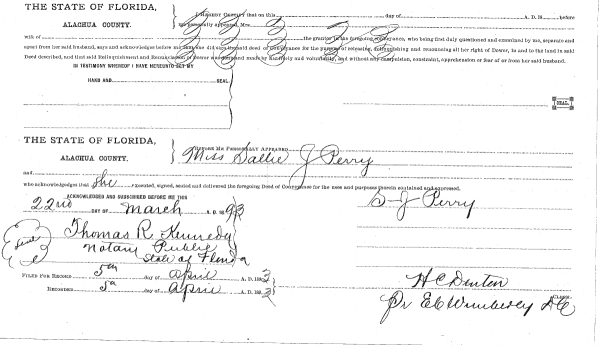 THE STATE OF FLORIDA,
ALACHUA COUNTY.
I HEREBY CERTIFY that on this day of A. D. 18 before
me personally appeared, Mrs.
wife of the grantor in the foregoing conveyance, who being first duly questioned and examined by me, separate and
apart from her said husband, says and acknowledges before me that she did sign the said deed of Conveyance for the purpose of releasing, relinquishing and renouncing all her right of Dower, in and to the land in said
Deed described, and that said Relinquishment and Renunciation of Dower was made by her freely and voluntarily, and without any compulsion, constraint, apprehension or fear of or from her said husband.
IN TESTIMONY WHEREOF I HAVE HEREUNTO SET MY
HAND AND SEAL
SEAL.
THE STATE OF FLORIDA,
ALACHUA COUNTY.
BEFORE ME PERSONALLY APPEARED
Miss Sallie J Perry
and
who acknowledges that she executed, signed, sealed and delivered the foregoing Deed of Conveyance for the uses and purposes therein contained and expressed.
ACKNOWLEDGED AND SUBSCRIBED BEFORE ME THIS
22nd DAY OF March A. D. 1893
S J Perry
Thomas R. Kennedy
Notary Public
State of Florida
Seal
FILED FOR RECORD 5th day of April A. D. 1893
RECORDED 5th day of April A. D. 1893
H C Denton
CLERK.
Pr E C Wimberly D C